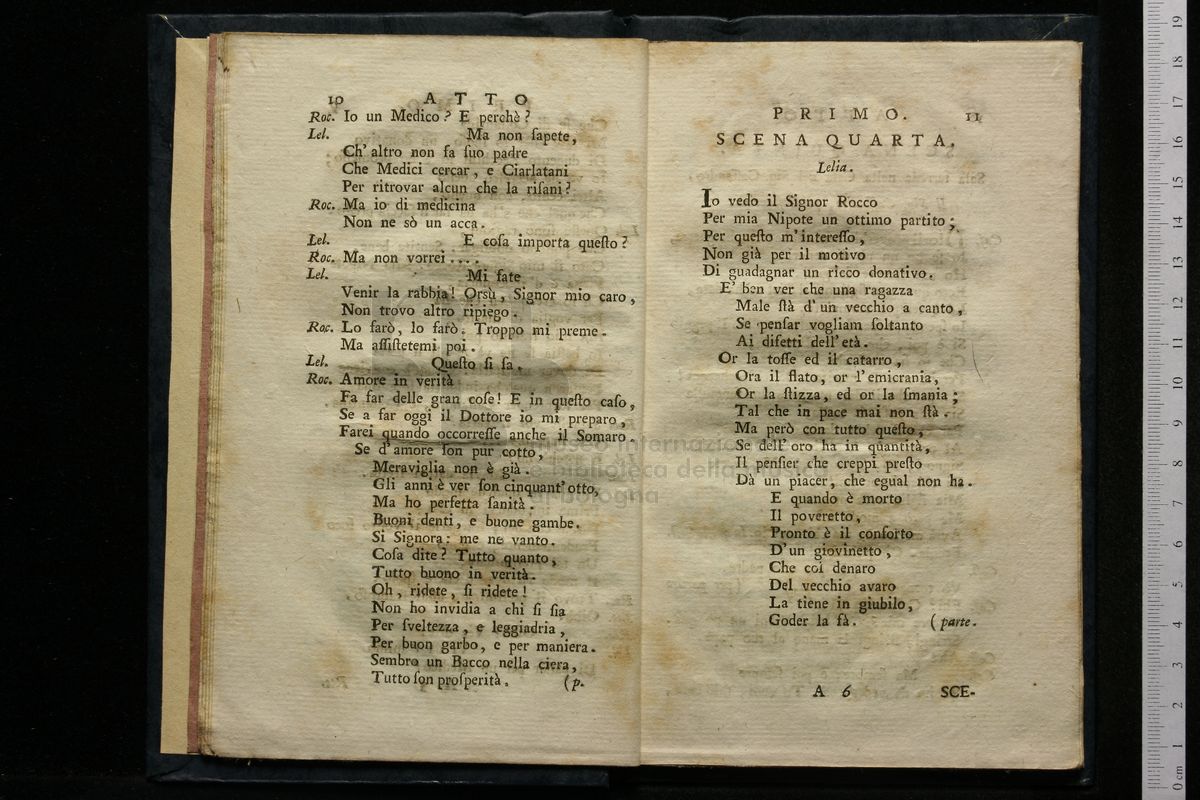 10 ATTO
Roc. Io un Medico? E perchè?
Lel. Ma non ſapete,
Ch' altro non fa ſuo padre
Che Medici cercar, e Ciarlatani
Per ritrovar alcun che la riſani?
Roc. Ma io di medicina
Non ne sò un acca.
Lel. E coſa importa queſto?
Roc. Ma non vorrei....
Lel. Mi fate
Venir la rabbia! Orsù, Signor mio caro,
Non trovo altro ripiego.
Roc. Lo farò, lo farò. Troppo mi preme.
Ma aſſiſtetemi poi.
Lel. Queſto ſi ſa.
Roc. Amore in verità
Fa far delle gran coſe! E in queſto caſo,
Se a far oggi il Dottore io mi preparo,
Farei quando occorreſſe anche il Somaro.
Se d'amore ſon pur cotto,
Meraviglia non è già.
Gli anni è ver ſon cinquant' otto,
Ma ho perfetta ſanità.
Buoni denti, e buone gambe.
Si Signora: me ne vanto.
Coſa dite? Tutto quanto,
Tutto buono in verità.
Oh, ridete, ſi ridete!
Non ho invidia a chi ſi ſia
Per ſveltezza, e leggiadria,
Per buon garbo, e per maniera.
Sembro un Bacco nella ciera,
Tutto ſon proſperità. (p.
PRIMO. 11
SCENA QUARTA.
Lelia.
Io vedo il Signor Rocco
Per mia Nipote un ottimo partito;
Per queſto m'intereſſo,
Non già per il motivo
Di guadagnar un ricco donativo.
E' ben ver che una ragazza
Male ſtà d'un vecchio a canto,
Se penſar vogliam ſoltanto
Ai difetti dell'età.
Or la toſſe ed il catarro,
Ora il flato, or l'emicrania,
Or la ſtizza, ed or la ſmania;
Tal che in pace mai non ſtà.
Ma però con tutto queſto,
Se dell'oro ha in quantità,
Il penſier che creppi preſto
Dà un piacer, che egual non ha.
E quando è morto
Il poveretto,
Pronto è il conforto
D'un giovinetto,
Che col denaro
Del vecchio avaro
La tiene in giubilo,
Goder la fà. (parte.
A 6 SCE-
museo internazionale
e biblioteca della musica
di bologna
0 cm 1 2 3 4 5 6 7 8 9 10 11 12 13 14 15 16 17 18 19